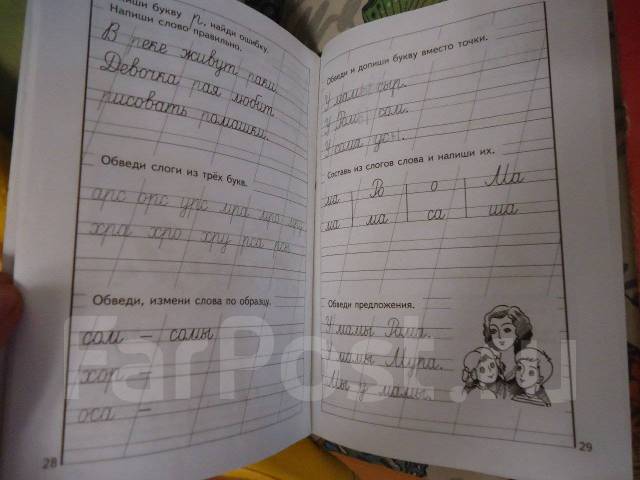 иши букву р, найди ошибку.
Напиши слово правильно.
В реке живут раки.
Девочка рая любит
рисовать ромашки.
Обведи слоги из трёх букв.
арс орс урс мра мро мру
хра хро хру рса рсо
Обведи, измени слова по образцу.
сом – сомы
хор –
оса –
28
Обведи и допиши букву вместо точки.
У мамы сыр.
У Ромы сом.
У сома усы.
Составь из слогов слова и напиши их.
ма Ро о Ма
ма ма са ша
Обведи предложения.
У мамы Рома.
У мамы Мура.
Мы у мамы.
29
FarPost.ru